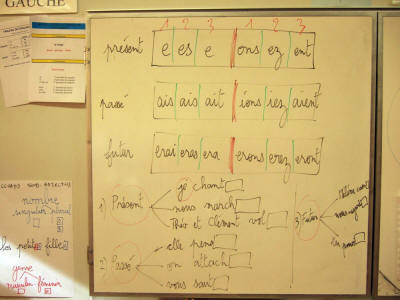 GAUCHE
1 2 3 1 2 3
présent e es e ons ez ent
passé ais ais ait ions iez aient
futur erai eras era erons erez eront
1) Présent
je chant
nous march
Théo et Clément vol
2) Passé
elle pens
on attach
vous saut
3) Futur
nombre
singulier pluriel
les petites filles
genre
masculin féminin